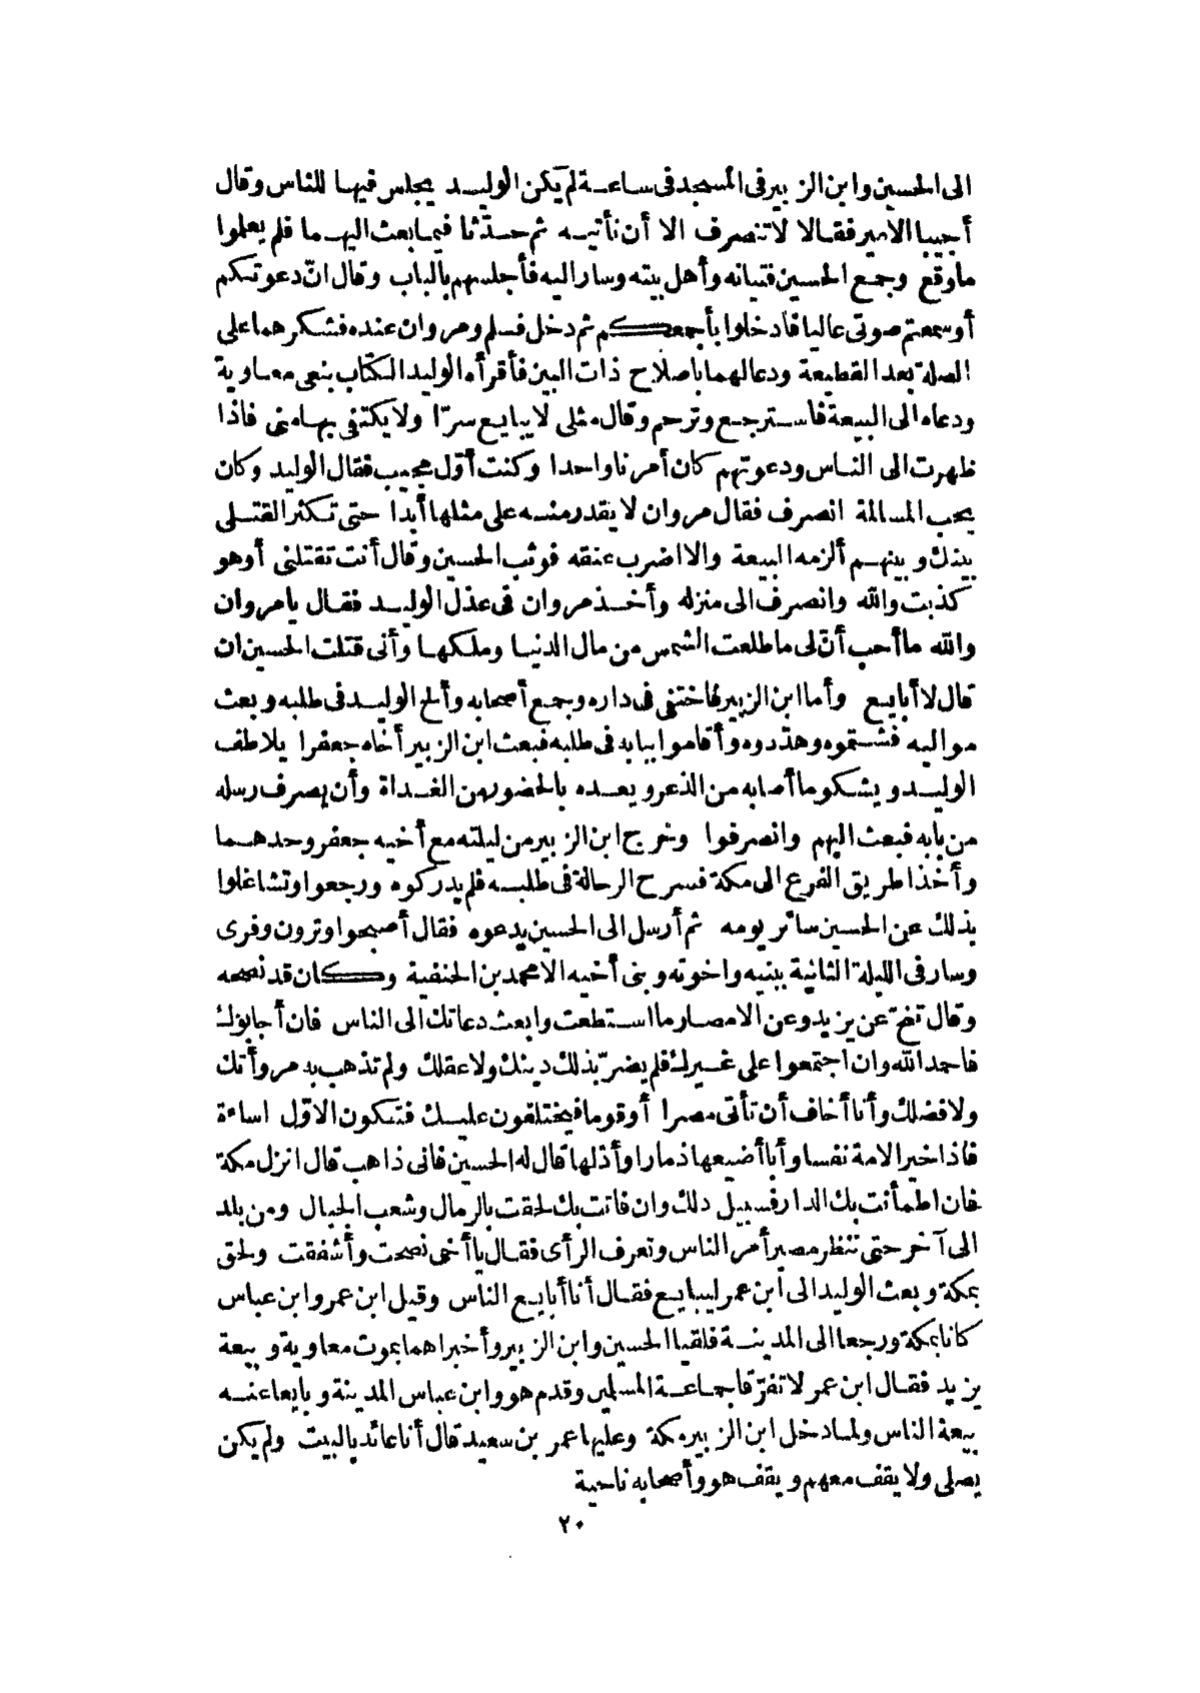 الى الحسين وابن الزبير فى المسجد فى ساعة لم يكن الوليد يجلس فيها للناس وقال
أجيبا الامير فقالا لا تنصرف الا أن نأتيه ثم حدّثا فيما بعث اليهما فلم يعلموا
ما وقع وجمع الحسين فتيانه وأهل بيته وسار اليه فأجلسهم بالباب وقال انّ دعوتكم
أو سمعتم صوتى عاليا فادخلوا بأجمعكم ثم دخل فسلم ومروان عنده فشكرهما على
الصلة بعد القطيعة ودعا لهما باصلاح ذات البين فأقرأه الوليد الكتاب بنعى معاوية
ودعاه الى البيعة فاسترجع وترحم وقال مثلى لا يبايع سرّا ولا يكتفى بها منى فاذا
ظهرت الى الناس ودعوتهم كان أمرنا واحدا وكنت أوّل مجيب فقال الوليد وكان
يحب المسالمة انصرف فقال مروان لا يقدر منه على مثلها أبدا حتى تكثر القتلى
بينك وبينهم ألزمه البيعة والا اضرب عنقه فوثب الحسين وقال أنت تقتلنى أو هو
كذبت والله وانصرف الى منزله وأخذ مروان فى عذل الوليد فقال يا مروان
والله ما أحب أنّ لى ما طلعت الشمس من مال الدنيا وملكها وأنى قتلت الحسين ان
قال لا أبايع وأما ابن الزبير فاختفى فى داره وجمع أصحابه وألح الوليد فى طلبه وبعث
مواليه فشتموه وهدّدوه وأقاموا ببابه فى طلبه فبعث ابن الزبير أخاه جعفرا يلاطف
الوليد ويشكو ما أصابه من الذعر ويعده بالحضور من الغداة وأن يصرف رسله
من بابه فبعث اليهم وانصرفوا وخرج ابن الزبير من ليلته مع أخيه جعفر وحدهما
وأخذا طريق الفرع الى مكة فسرح الرحالة فى طلبه فلم يدركوه ورجعوا وتشاغلوا
بذلك عن الحسين سائر يومه ثم أرسل الى الحسين يدعوه فقال أصبحوا وترون وفرى
وسار فى الليلة الثانية ببنيه واخوته وبنى أخيه الا محمد بن الحنفية وكان قد نصحه
وقال تنحّ عن يزيد وعن الامصار ما استطعت وابعث دعاتك الى الناس فان أجابوك
فاحمد الله وان اجتمعوا على غيرك فلم يضرّ بذلك دينك ولا عقلك ولم تذهب به مروأتك
ولا فضلك وأنا أخاف أن تأتى مصرا أو قوما فيختلفون عليك فتكون الاوّل اساءة
فاذا خير الامة نفسا وأبا أضيعها ذمارا وأذلها قال له الحسين فانى ذاهب قال انزل مكة
فان اطمأنت بك الدار فسبيل ذلك وان فاتت بك لحقت بالرمال وشعب الجبال ومن بلد
الى آخر حتى تنظر مصير أمر الناس وتعرف الرأى فقال يا أخى نصحت وأشفقت ولحق
بمكة وبعث الوليد الى ابن عمر ليبايع فقال أنا أبايع الناس وقيل ابن عمر وابن عباس
كانا بمكة ورجعا الى المدينة فلقيا الحسين وابن الزبير وأخبراهما بموت معاوية وبيعة
يزيد فقال ابن عمر لا تفرّقا جماعة المسلمين وقدم هو وابن عباس المدينة وبايعا عنه
بيعة الناس ولما دخل ابن الزبير مكة وعليها عمر بن سعيد قال أنا عائذ بالبيت ولم يكن
يصلى ولا يقف معهم ويقف هو وأصحابه ناحية
٢٠